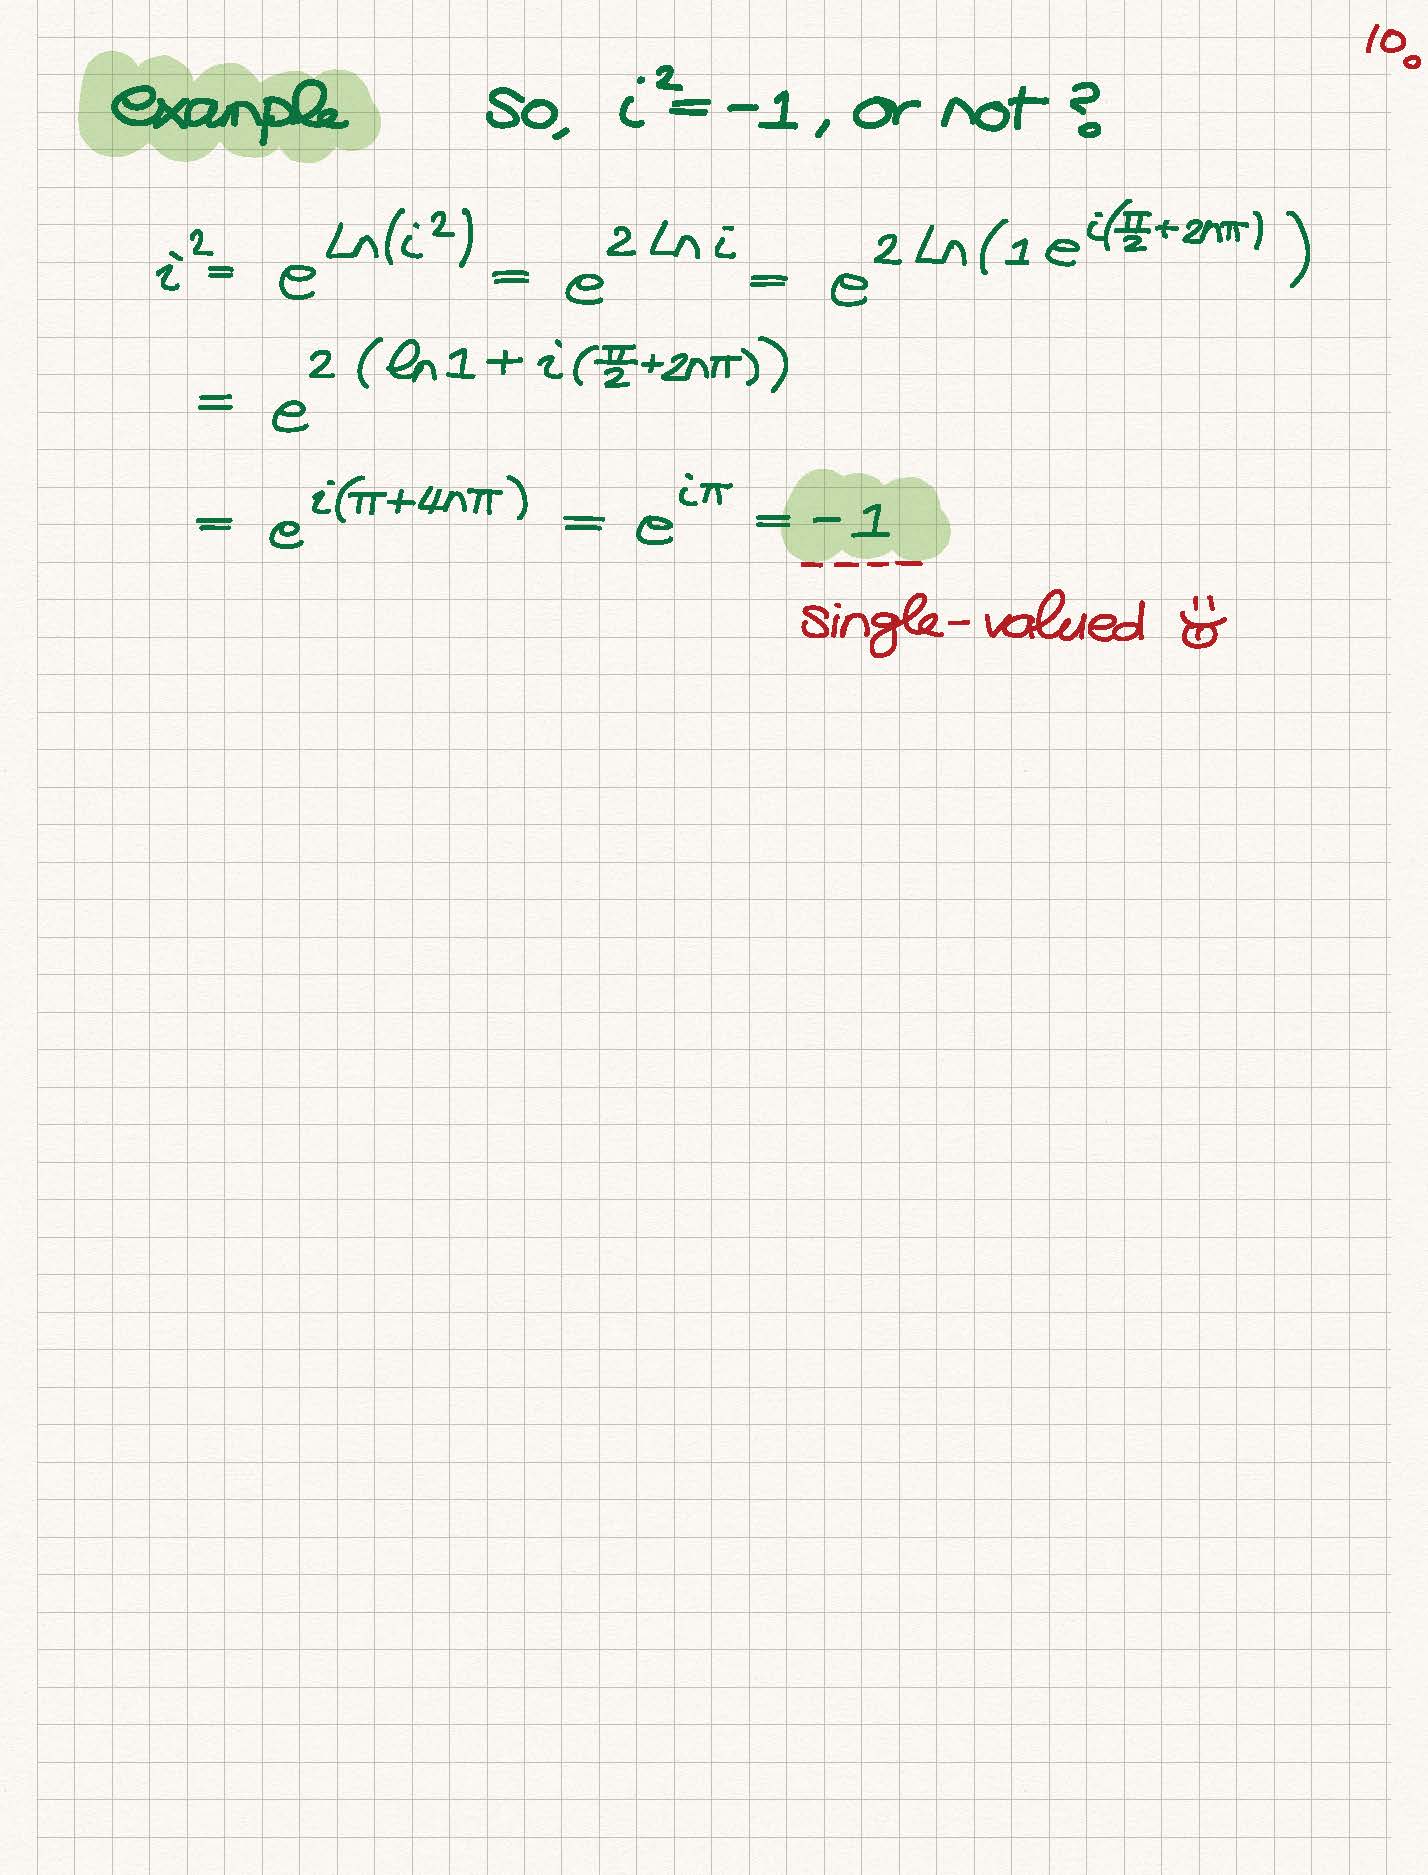 10.
example So, i² = -1, or not?
i² = e^{Ln(i²)} = e^{2 Ln i} = e^{2 Ln(1 e^{i(π/2 + 2nπ)})}
= e^{2 (ln 1 + i(π/2 + 2nπ))}
= e^{i(π + 4nπ)} = e^{iπ} = -1
single-valued